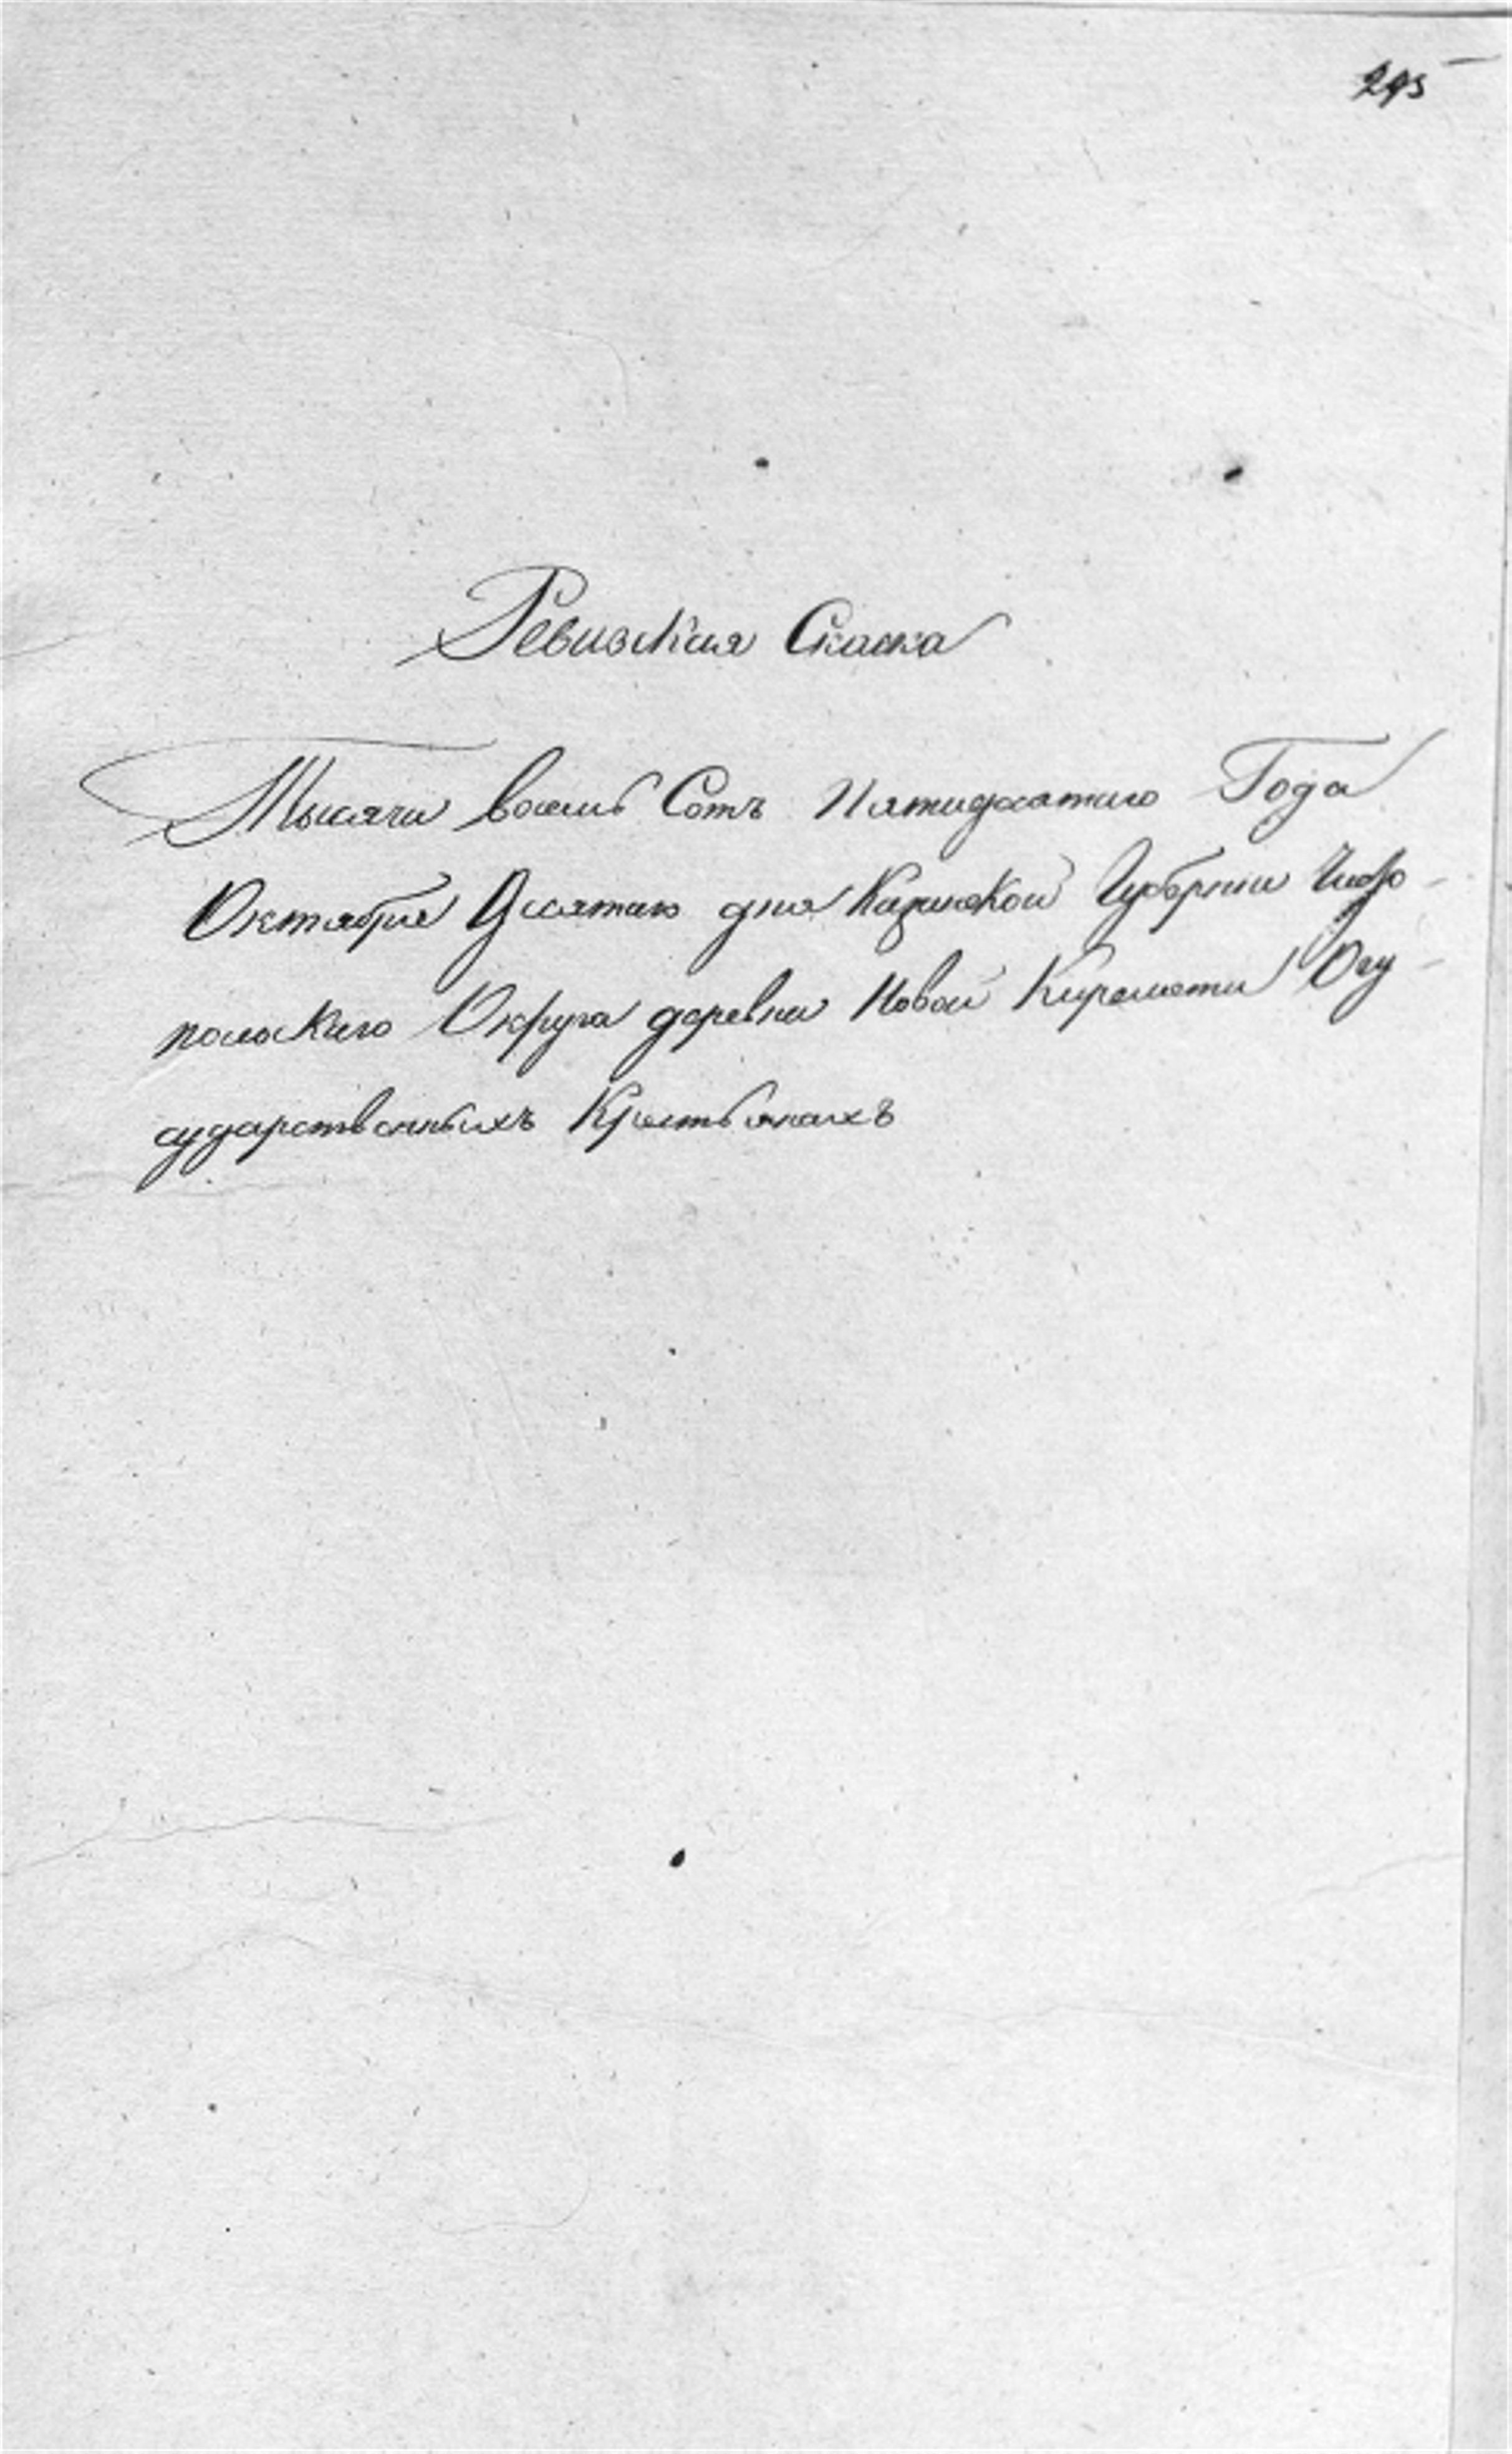 295
Ревизская Скаска
Тысяча восемь Сотъ Пятидесятаго Года
Октября Десятаго дня Казанской Губернии Чисто-
польскаго Округа деревни Новой Киремети Огу-
сударственныхъ Крестьянахъ